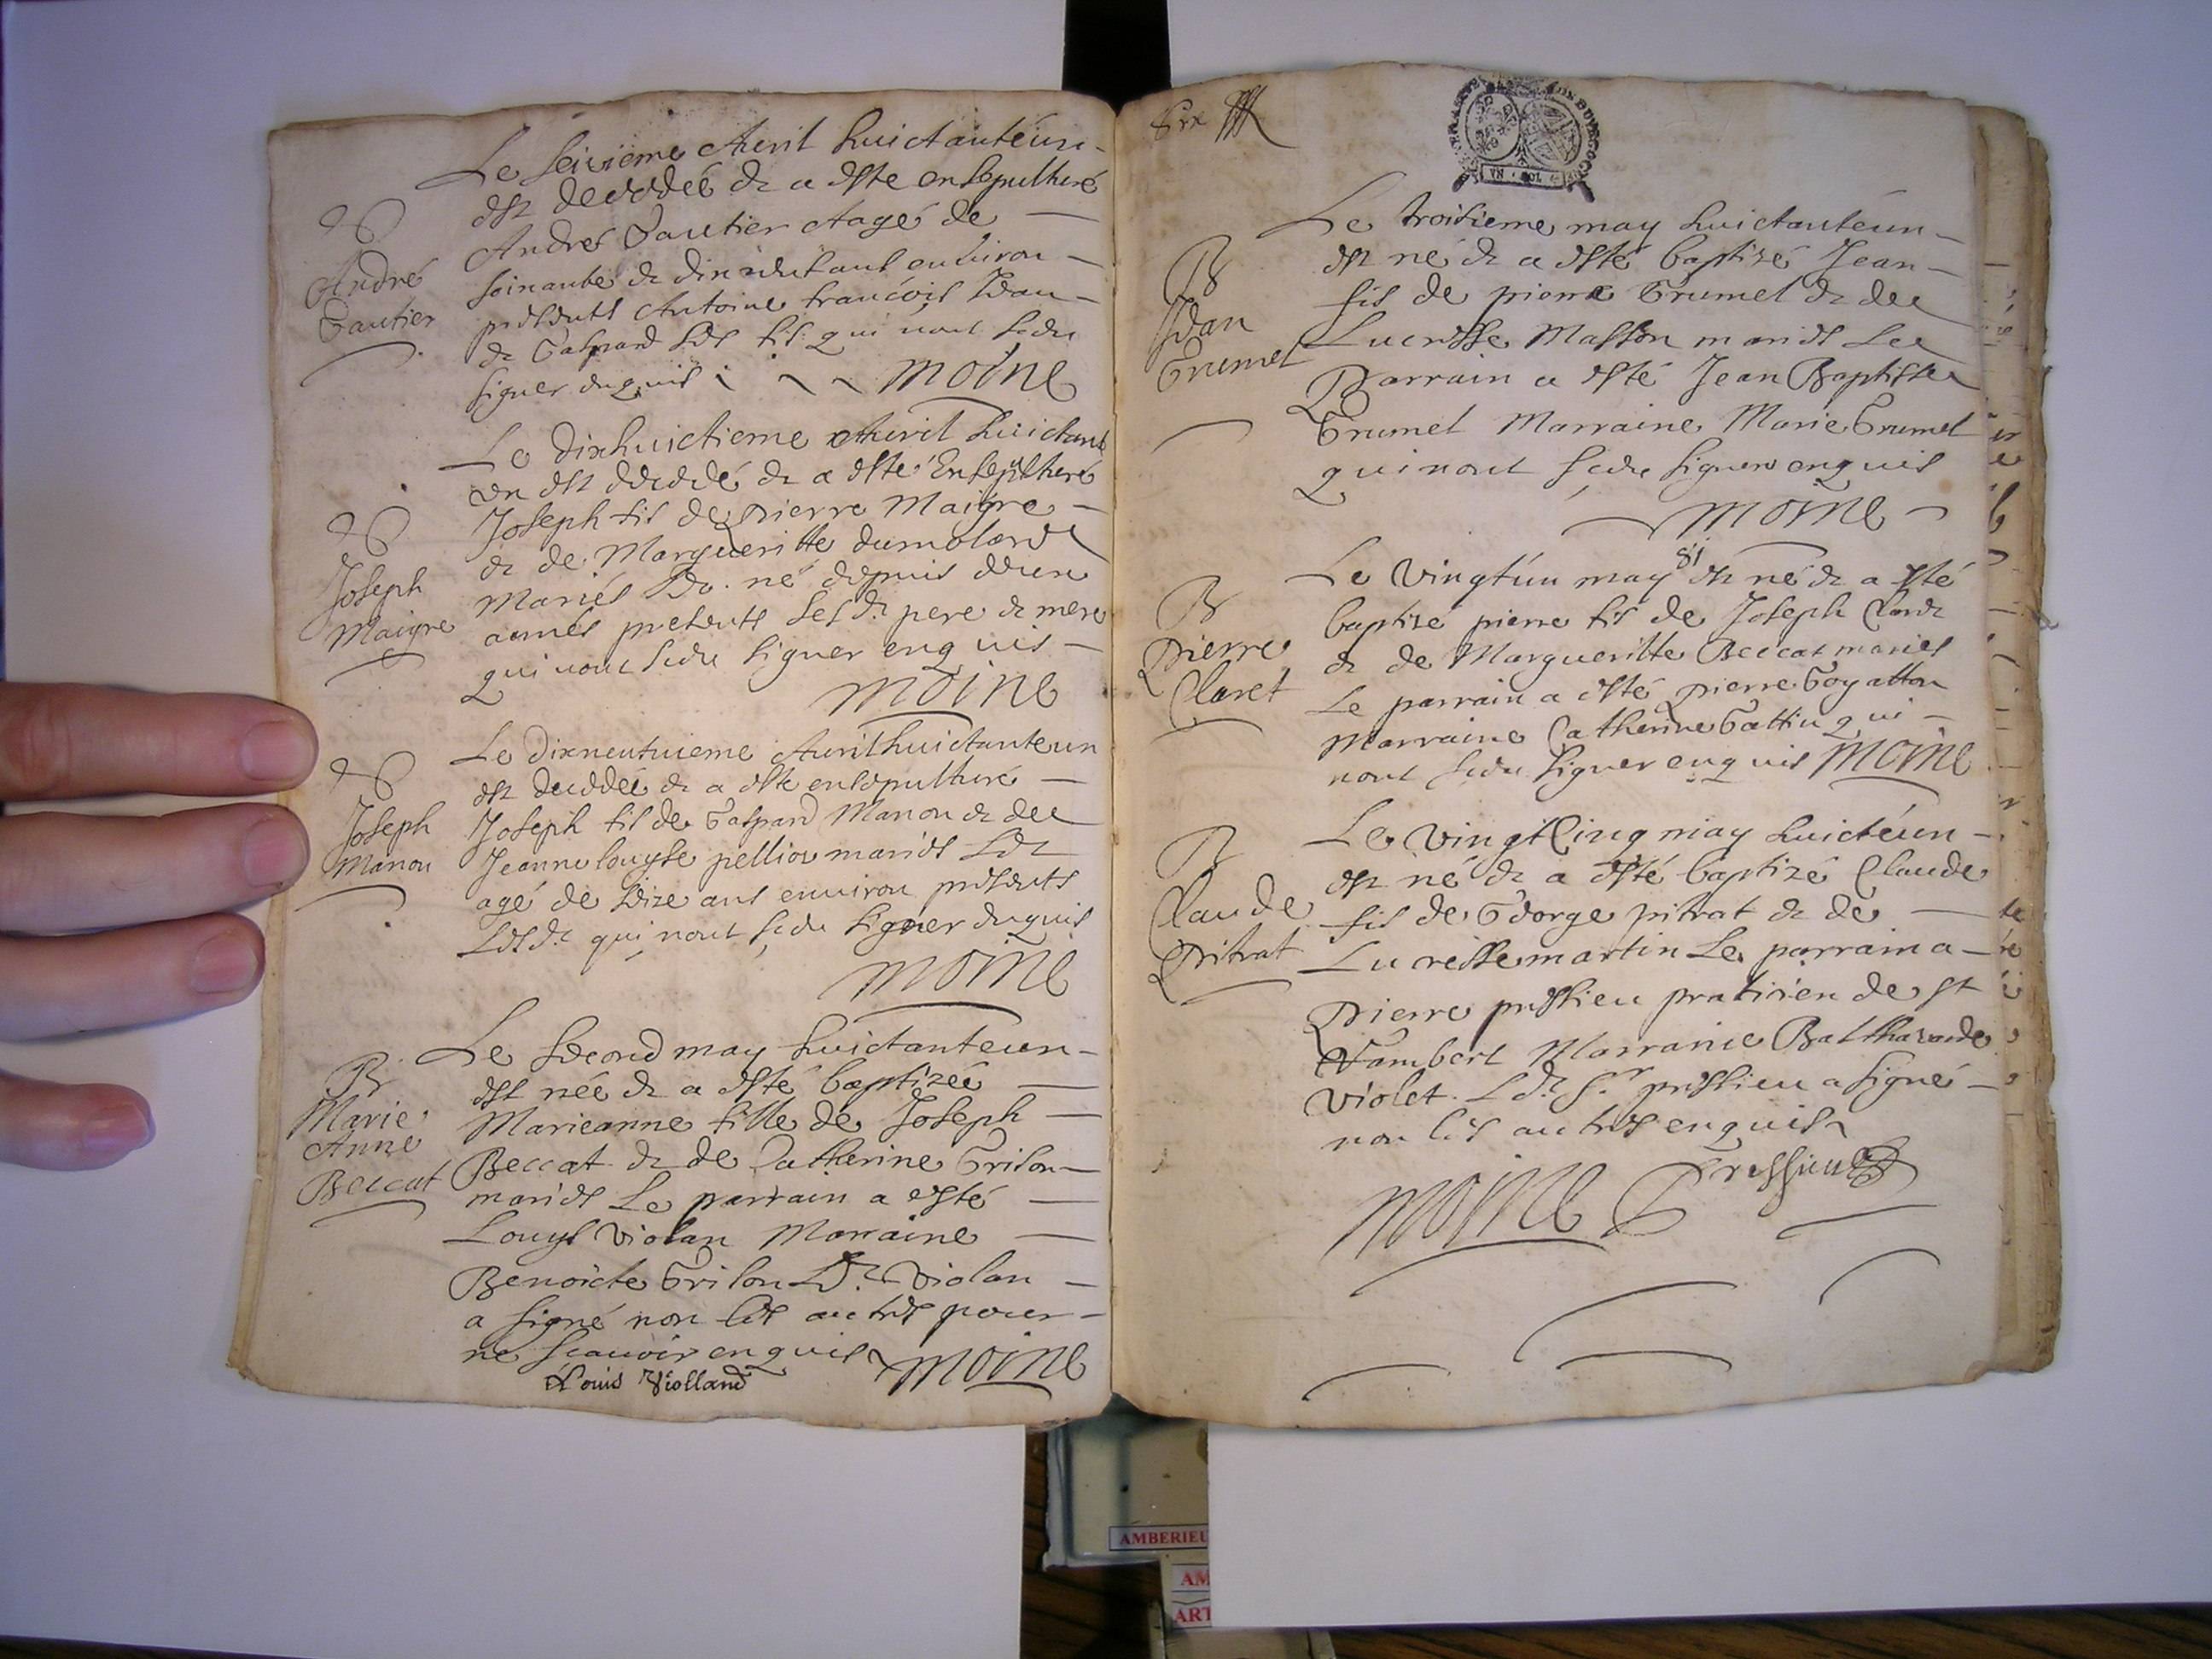 Le seizieme Avril huictanteun
est deceddé & a esté ensepulturé
André Gautier Aagé de
soixante & dix huit ans environ
presents Antoine francois Jean
& Gaspard ses fils qui n'ont sceu
signer enquis moine
André
Gautier
Le dixhuictieme Avril huictante
un est deceddé & a esté Ensepulturé
Joseph fils de pierre Maigre
& de Margueritte dumolard
mariés né depuis deux
années presents les d. pere & mere
qui n'ont sceu signer enquis
moine
Joseph
Maigre
Le dixneufvieme Avril huictanteun
est deceddé & a esté ensepulturé
Joseph fils de Gaspard Manon & de
Jeanne louyse pellion mariés
agé de seize ans environ presents
qui n'ont sceu signer enquis
moine
Joseph
Manon
Le second may huictanteun
est née & a esté baptizée
Marieanne fille de Joseph
Beccat & de Catherine Grison
mariés Le parrain a esté
Louys Violan Marraine
Benoicte Grison Violan
a signé non les autres pour
ne scavoir enquis moine
Louis Violland
B
Marie
Anne
Beccat
UN SOL
Le troisieme may huictanteun
est né & a esté baptizé Jean
fils de pierre Grumel & de
Lucresse Masson mariés Le
Parrain a esté Jean Baptiste
Grumel Marraine Marie Grumel
qui n'ont sceu signer enquis
moine
B
Jean
Grumel
Le vingtun may 81 est né & a esté
baptizé pierre fils de Joseph Claret
& de Margueritte Beccat mariés
Le parrain a esté pierre Goyatton
Marraine Catherine Gattin qui
n'ont sceu signer enquis moine
B
Pierre
Claret
Le vingt cinq may huictéun
est né & a esté baptizé Claude
fils de George pitrat & de
Lucresse martin Le parrain a
Pierre pressieu praticien de st
Rambert Marraine Balthazarde
violet. Led. Sr pressieu a signé
non les autres enquis
moine Pressieu
B
Claude
Pitrat
AMBERIEU
AM
ART